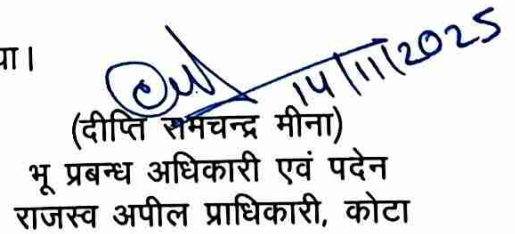 या।
14/11/2025
(दीप्ति रामचन्द्र मीना)
भू प्रबन्ध अधिकारी एवं पदेन
राजस्व अपील प्राधिकारी, कोटा